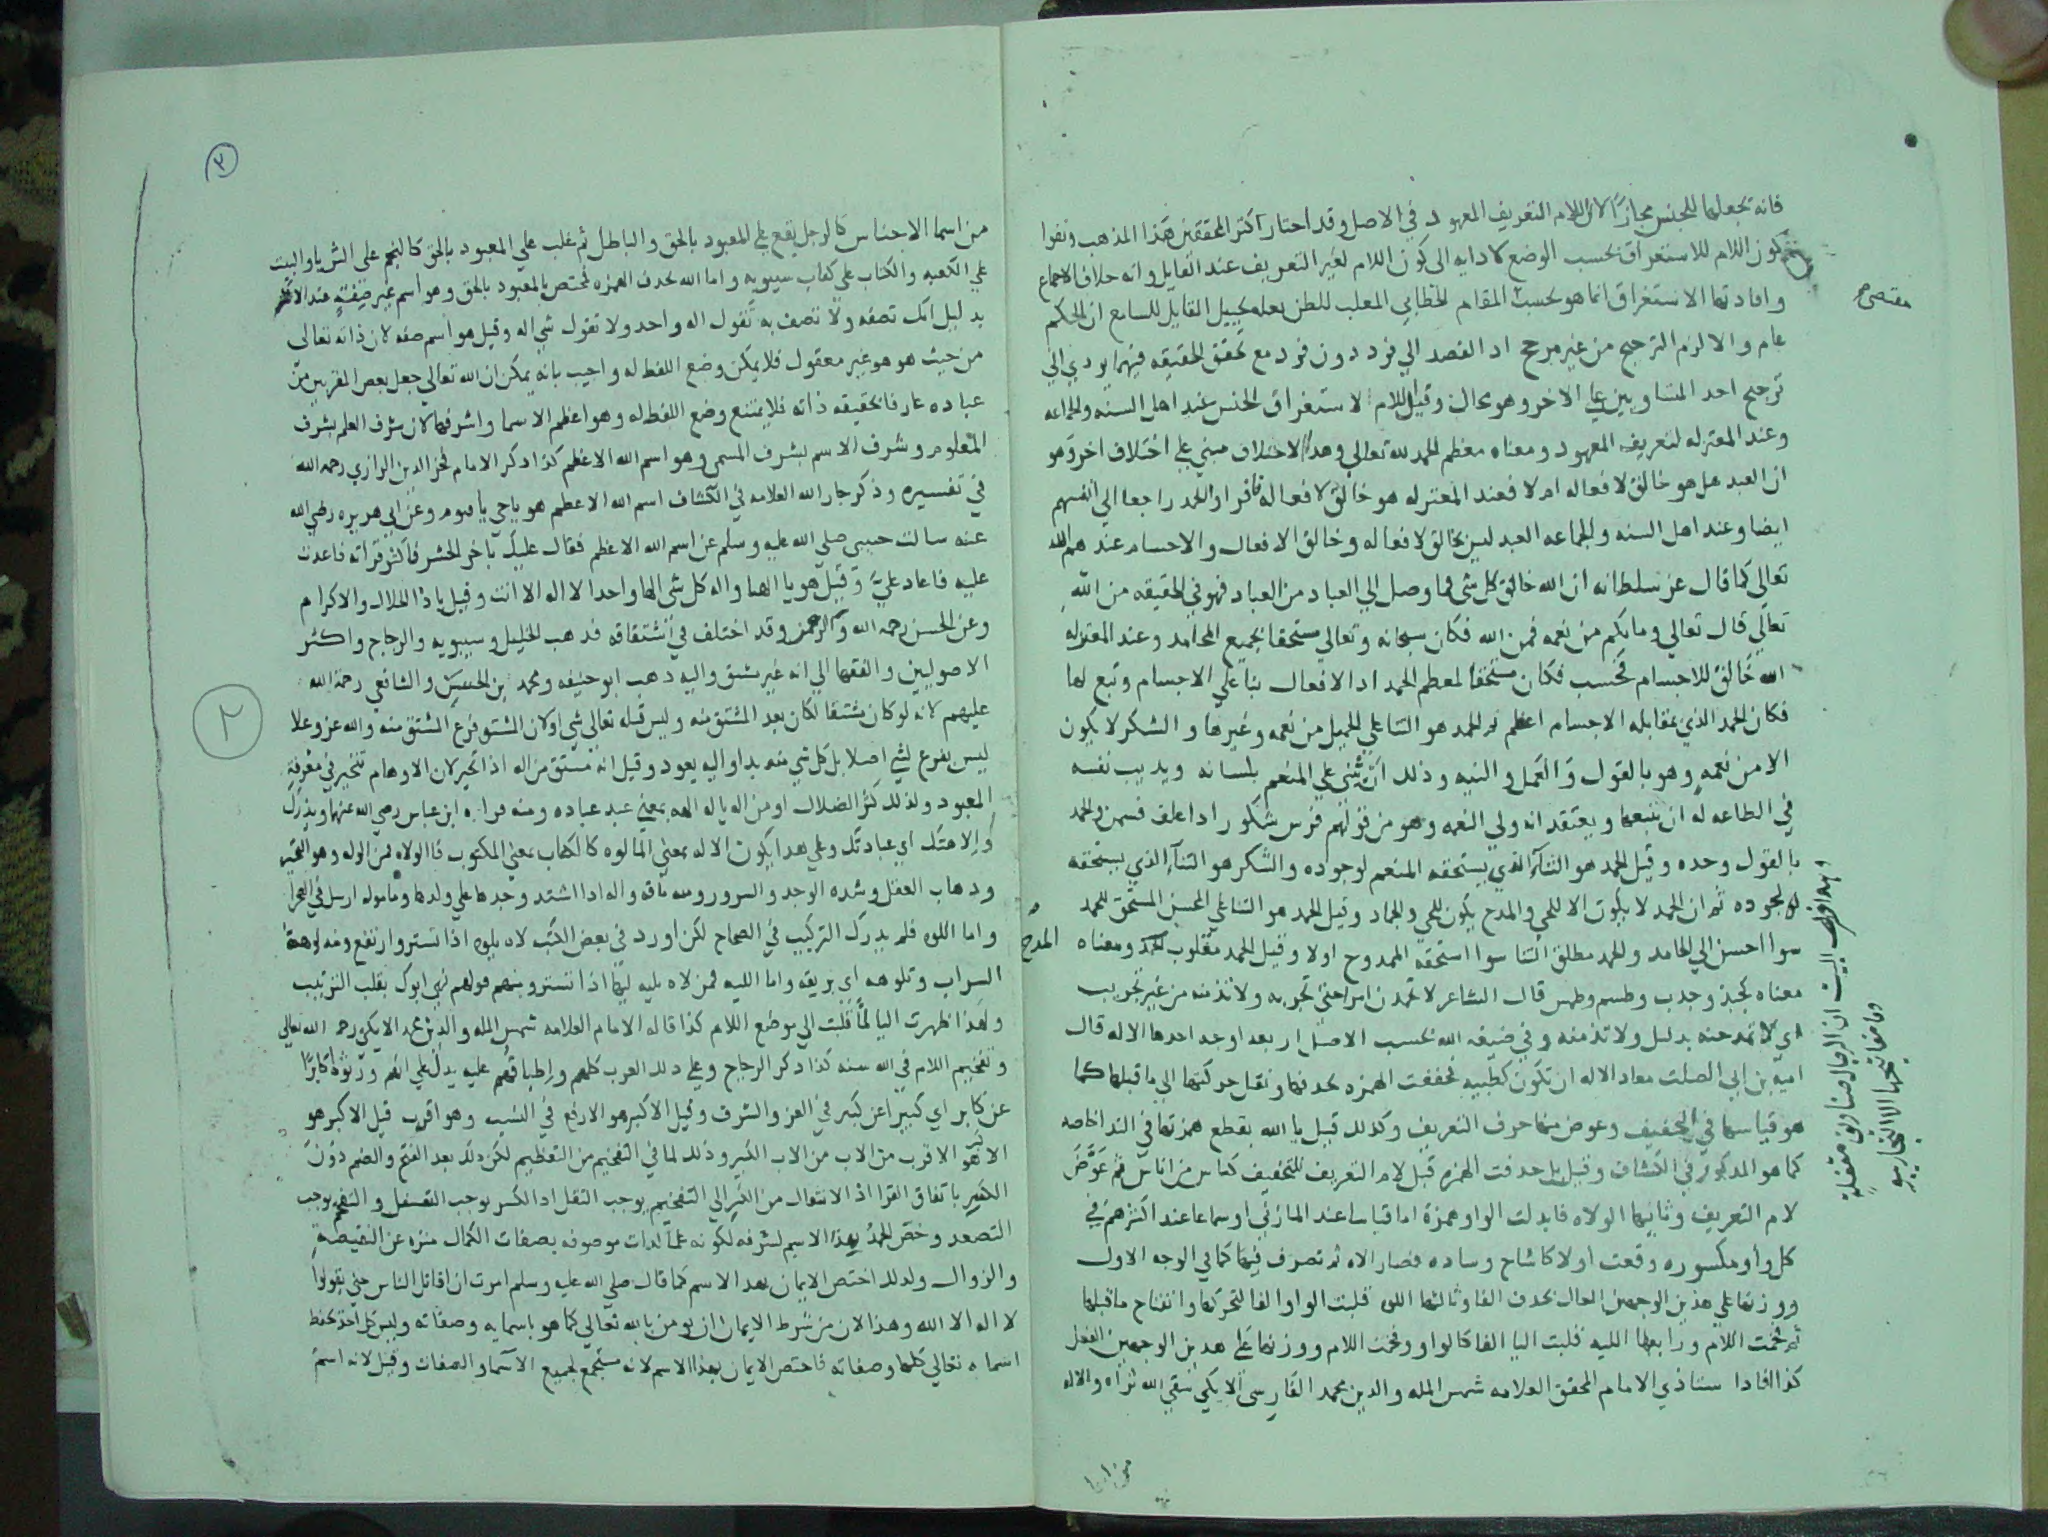 فانه يجعلها للجنس مجازا لان اللام التعريف المعهود في الاصل وقد اختار اكثر المحققين هذا المذهب ونفوا
كون اللام للاستغراق بحسب الوضع لادايه الى كون اللام لغير التعريف عند القايل وانه خلاف الاجماع
وافادتها الاستغراق انما هو بحسب المقام الخطابي المغلب للظن بعله تخييل القايل للسامع ان الحكم
مقتضى
عام والا لزم الترجيح من غير مرجح اذ القصد الي فرد دون فرد مع تحقق الحقيقه فيهما يودي الي
ترجيح احد المتساويين على الاخر وهو محال وقيل اللام لاستغراق الجنس عند اهل السنه والجماعه
وعند المعتزله لتعريف المعهود ومعناه معظم الحمد لله تعالي وهذا الاختلاف مبني علي اختلاف اخر وهو
ان العبد هل هو خالق لافعاله ام لا فعند المعتزله هو خالق لافعاله افراد الحمد راجعا الي انفسهم
ايضا وعند اهل السنه والجماعه العبد ليس بخالق لافعاله وخالق الافعال والاجسام عندهم الله
تعالى كما قال عز سلطانه ان الله خالق كل شي فما وصل الي العباد من العباد فهو في الحقيقه من الله
تعالي قال تعالي وما بكم من نعمه فمن الله فكان سبحانه وتعالي مستحقا لجميع المحامد وعند المعتزله
الله خالق للاجسام فحسب فكان مستحقا لمعظم الحمد اذ الافعال بنا علي الاجسام وتبع لها
فكان الحمد الذي بمقابله الاجسام اعظم ثم الحمد هو الثنا علي الجميل من نعمه وغيرها والشكر لا يكون
الا من نعمه وهو بالقول والعمل والنيه وذلك ان يثني علي المنعم بلسانه ويديب نفسه
في الطاعه له ان يتبعها ويعتقد انه ولي النعمه وهو من قولهم فرس شكور اذا علف فسمن والحمد
بالقول وحده وقيل الحمد هو الثناء الذي يستحقه المنعم لوجوده والشكر هو الثناء الذي يستحقه
لجوده ثم ان الحمد لا يكون الا للحي والمدح يكون للحي والجماد وقيل الحمد هو الثنا علي المحسن المستحق للحمد
سوا احسن الي الحامد والحمد مطلق الثنا سوا استحقه الممدوح اولا وقيل الحمد مقلوب المدح ومعناه
المدح
معناه كجبذ وجذب وطسم وطمس قال الشاعر لا تحمدن امرا حتى تجربه ولا تذمنه من غير تجريب
اي لا تمدحنه بدليل ولا تذمنه وفي صيغه الله بحسب الاصل اربعه اوجه احدها الاله قال
اميه بن ابي الصلت معاذ الاله ان تكون كظبيه فخففت الهمزه بحذفها ونقل حركتها الي ما قبلها كما
هو قياسها في التخفيف وعوض منها حرف التعريف وكذلك قيل يا الله بقطع همزتها في الندا خاصه
كما هو المذكور في الكشاف وقيل بل حذفت الهمزه قبل لام التعريف للتخفيف كناس من اناس ثم عوض
لام التعريف وثانيها الولاه فابدلت الواو همزة اما قياسا عند المازني او سماعا عند اكثرهم في
كل واو مكسوره وقعت اولا كاشاح وساده فصار الاه ثم تصرف فيها كما في الوجه الاول
ووزنها علي هذين الوجهين العال بحذف الفا وثالثها اللوه قلبت الواو الفا لتحركها وانفتاح ما قبلها
ثم فخمت اللام ورابعها الليه قلبت اليا الفا كالواو وفخمت اللام ووزنها على هذين الوجهين الفعل
كذا افادا ستاذي الامام المحقق العلامه شمس المله والدين محمد الفارسي الايكي سقي الله ثراه والاله
من اسما
ان الرجال صناديق مقفلة
وما مفاتيحها الا التجاريب
٢
من اسما الاجناس كالرجل يقع علي المعبود بالحق والباطل ثم غلب علي المعبود بالحق كالنجم على الثريا والبيت
علي الكعبه والكتاب علي كتاب سيبويه واما الله بحذف الهمزه فمختص بالمعبود بالحق وهو اسم غير صفة عند الاكثر
بدليل انك تصفه ولا تصف به تقول اله واحد ولا تقول شي اله وقيل هو اسم صفه لان ذاته تعالى
من حيث هو هو غير معقول فلا يمكن وضع اللفظ له واجيب بانه يمكن ان الله تعالي جعل بعض المقربين من
عباده عارفا بحقيقه ذاته فلا يمتنع وضع اللفظ له وهو اعظم الاسما واشرفها لان شرف العلم بشرف
المعلوم وشرف الاسم بشرف المسمى وهو اسم الله الاعظم كذا ذكر الامام فخر الدين الرازي رحمه الله
في تفسيره وذكر جار الله العلامه في الكشاف اسم الله الاعظم هو يا حي يا قيوم وعن ابي هريره رضي الله
عنه سالت حبيبي صلي الله عليه وسلم عن اسم الله الاعظم فقال عليك باخر الحشر فاكثر قراته فاعدت
عليه فاعاد علي وقيل هو يا الهنا واله كل شي الها واحدا لا اله الا انت وقيل يا ذا الجلال والاكرام
وعن الحسن رحمه الله والرحمن وقد اختلف في اشتقاقه فذهب الخليل وسيبويه والزجاج واكثر
الاصوليين والفقها الي انه غير مشتق واليه ذهب ابو حنيفه ومحمد بن الحسن والشافعي رحمة الله
عليهم لانه لو كان مشتقا لكان بعد المشتق منه وليس قبله تعالي شي اولان المشتق فرع المشتق منه والله عز وعلا
٢
ليس بفرع لشي اصلا بل كل شي منه بدا واليه يعود وقيل انه مشتق من اله اذا تحير لان الاوهام تتحير في معرفة
المعبود ولذلك كثر الضلال او من اله ياله الهه بمعنى عبد عباده ومنه قراه ابن عباس رضي الله عنهما ويذرك
والاهتك اي عبادتك وعلي هذا يكون الاله بمعني المالوه كالكتاب بمعني المكتوب فالولاه من الوله وهو التحير
وذهاب العقل وشده الوجد والسرور ومنه ناقه واله اذا اشتد وجدها علي ولدها
واما اللوه فلم يدرك التركيب في الصحاح لكن اورد في بعض الكتب لاه يلوه اذا تستر وارتفع ومنه لوهة
السراب وتلوهه اي بريقه واما الليه فمن لاه يليه ليها اذا تستر ومنهم قولهم لهي ابوك بقلب الترتيب
ولهذا ظهرت اليا لما قلبت الي موضع اللام كذا قاله الامام العلامه شمس المله والدين محمد الايكي رحمه الله تعالي
وتفخيم اللام في الله سنه كذا ذكر الزجاج وعلي ذلك العرب كلهم واطباقهم عليه يدل علي انهم ورثوه كابرا
عن كابر اي كبيرا عن كبير في العز والشرف وقيل الاكبر هو الارفع في النسب وهو اقرب قيل الاكبر هو
الاقرب من الاب من الاب الكبير وذلك لما في التفخيم من التعظيم لكن ذلك بعد الفتح والضم دون
الكسر باتفاق القرا اذ الانتقال من الكسر الي التفخيم يوجب الثقل اذ الكسر يوجب التسفل والتفخم يوجب
التصعد وخص الحمد بهذا الاسم لشرفه لكونه علما لذات موصوفه بصفات الكمال منزه عن النقيصة
والزوال ولذلك اختص الايمان بهذا الاسم كما قال صلي الله عليه وسلم امرت ان اقاتل الناس حتي يقولوا
لا اله الا الله وهذا لان من شرط الايمان ان يومن بالله تعالي كما هو باسمايه وصفاته وليس كل احد يحفظ
اسماه تعالي كلها وصفاته فاختص الايمان بهذا الاسم لانه مستجمع لجميع الاسما والصفات وقيل لانه اسم